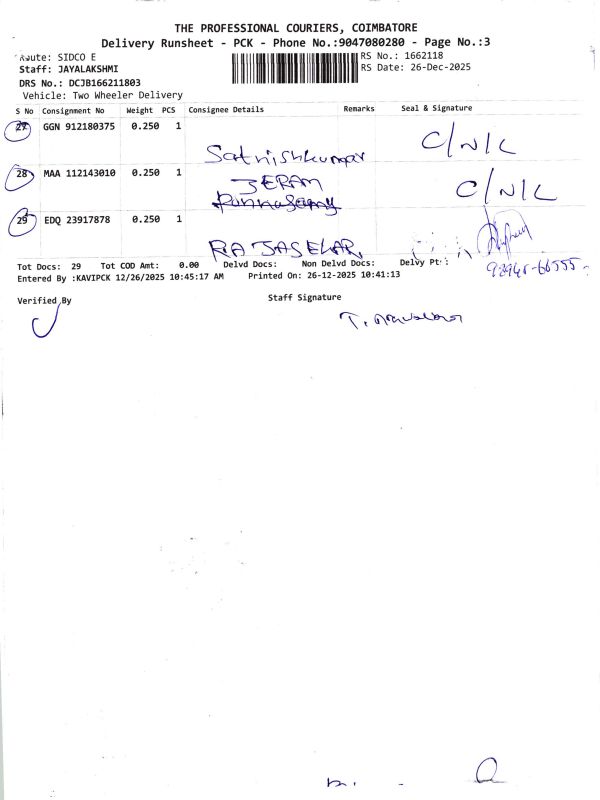 THE PROFESSIONAL COURIERS, COIMBATORE
Delivery Runsheet - PCK - Phone No.:9047080280 - Page No.:3
Route: SIDCO E
RS No.: 1662118
Staff: JAYALAKSHMI
RS Date: 26-Dec-2025
DRS No.: DCJB166211803
Vehicle: Two Wheeler Delivery
S No Consignment No Weight PCS Consignee Details Remarks Seal & Signature
27 GGN 912180375 0.250 1
Sathishkumar C/N/L
28 MAA 112143010 0.250 1 JERAM C/N/L
Ponnusamy
29 EDQ 23917878 0.250 1
RAJASEKAR
Tot Docs: 29 Tot COD Amt: 0.00 Delvd Docs: Non Delvd Docs: Delvy Pt:
98948-66555
Entered By :KAVIPCK 12/26/2025 10:45:17 AM Printed On: 26-12-2025 10:41:13
Verified By Staff Signature